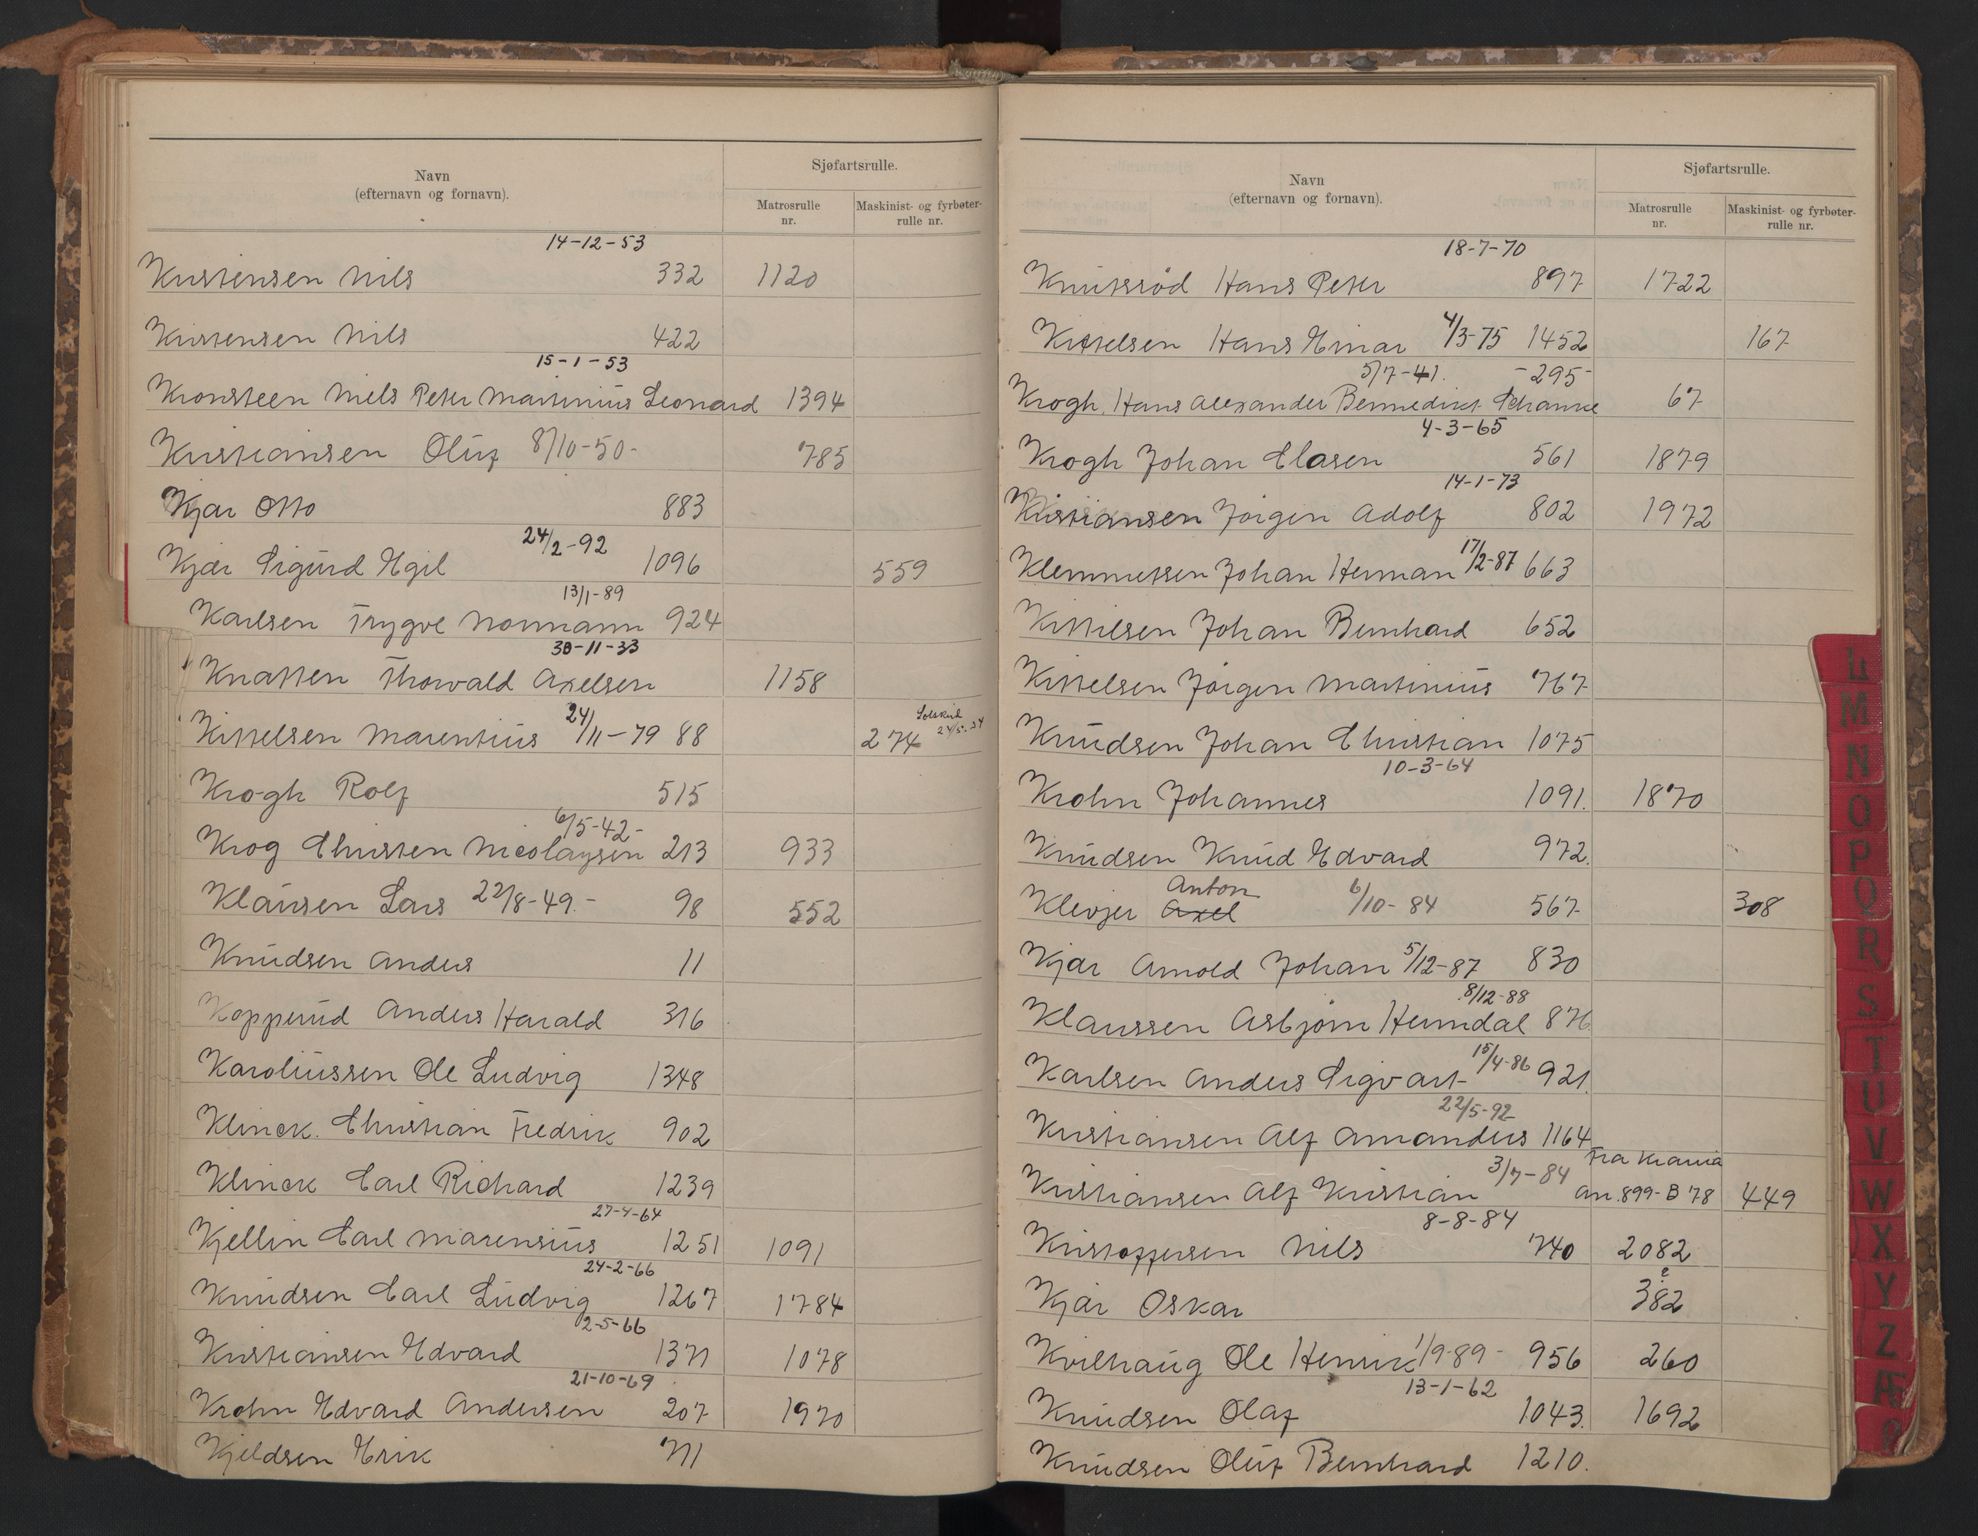 Navn
(efternavn og fornavn).
Sjøfartsrulle.
Matrosrulle
nr.
Maskinist- og fyrbøter-
rulle nr.
14-12-53
Kristensen Nils 332 1120
Kristensen Nils 422
15-1-53
Kronsteen Niels Peter Martinius Leonard 1394
Kristiansen Oluf 8/10-50- 785
Kjær Otto 883
24/2-92
Kjær Sigurd Egil 1096 559
13/1-89
Karlsen Trygve Normann 924
30-11-33
Knatten Thorvald Axelsen 1158
Kittelsen Marentius 24/11-79 88 274
Krogh Rolf 515
6/5-42-
Krog Christen Nicolaysen 213 933
Klausen Lars 22/8-49.- 98 552
Knudsen Anders 11
Kopperud Anders Harald 316
Karoliussen Ole Ludvig 1348
Klinck. Christian Fredrik 902
Klinck Carl Richard 1239
27-4-64
Kjellin Carl Marensius 1251 1091
24-2-66
Knudsen Carl Ludvig 1267 1784
2-5-66
Kristiansen Edvard 1371 1078
21-10-69
Krohn Edvard Andersen 207 1970
Kjeldsen Erik 711
Navn
(efternavn og fornavn).
Sjøfartsrulle.
Matrosrulle
nr.
Maskinist- og fyrbøter-
rulle nr.
18-7-70
Knutsrød Hans Peter 897 1722
Kittelsen Hans Einar 4/3-75 1452 167
5/7-41. -295-
Krogh. Hans Alexander Bennedict Schanke 67
4-3-65
Krogh Johan Clasen 561 1879
14-1-73
Kristiansen Jørgen Adolf 802 1972
Klemmetsen Johan Herman 17/2-87 663
Kittilsen Johan Bernhard 652
Kittelsen Jørgen Martinius 767
Knudsen Johan Christian 1075
10-3-64
Krohn Johannes 1091. 1870
Knudsen Knud Edvard 972.
Anton
Klevjer Axel 6/10-84 567 308
Kjær Arnold Johan 5/12-87 830
8/12-88
Klaussen Asbjørn Heimdal 876
Karlsen Anders Sigvart 15/4-86 921.
22/5-92
Kristiansen Alf Amandus 1164
Fra Krania
Kristiansen Alf Kristian 3/7-84 An.899-B 78 449
8-8-84
Kristoffersen Nils 740 2082
Kjær Oskar 382
Kvilhaug Ole Henrik 1/9-89- 956 260
13-1-62
Knudsen Olaf 1043. 1692
Knudsen Oluf Bernhard 1210.
L
M
N
O
P
Q
R
S
T
U
V
W
X
Y
Z
Æ
Ø